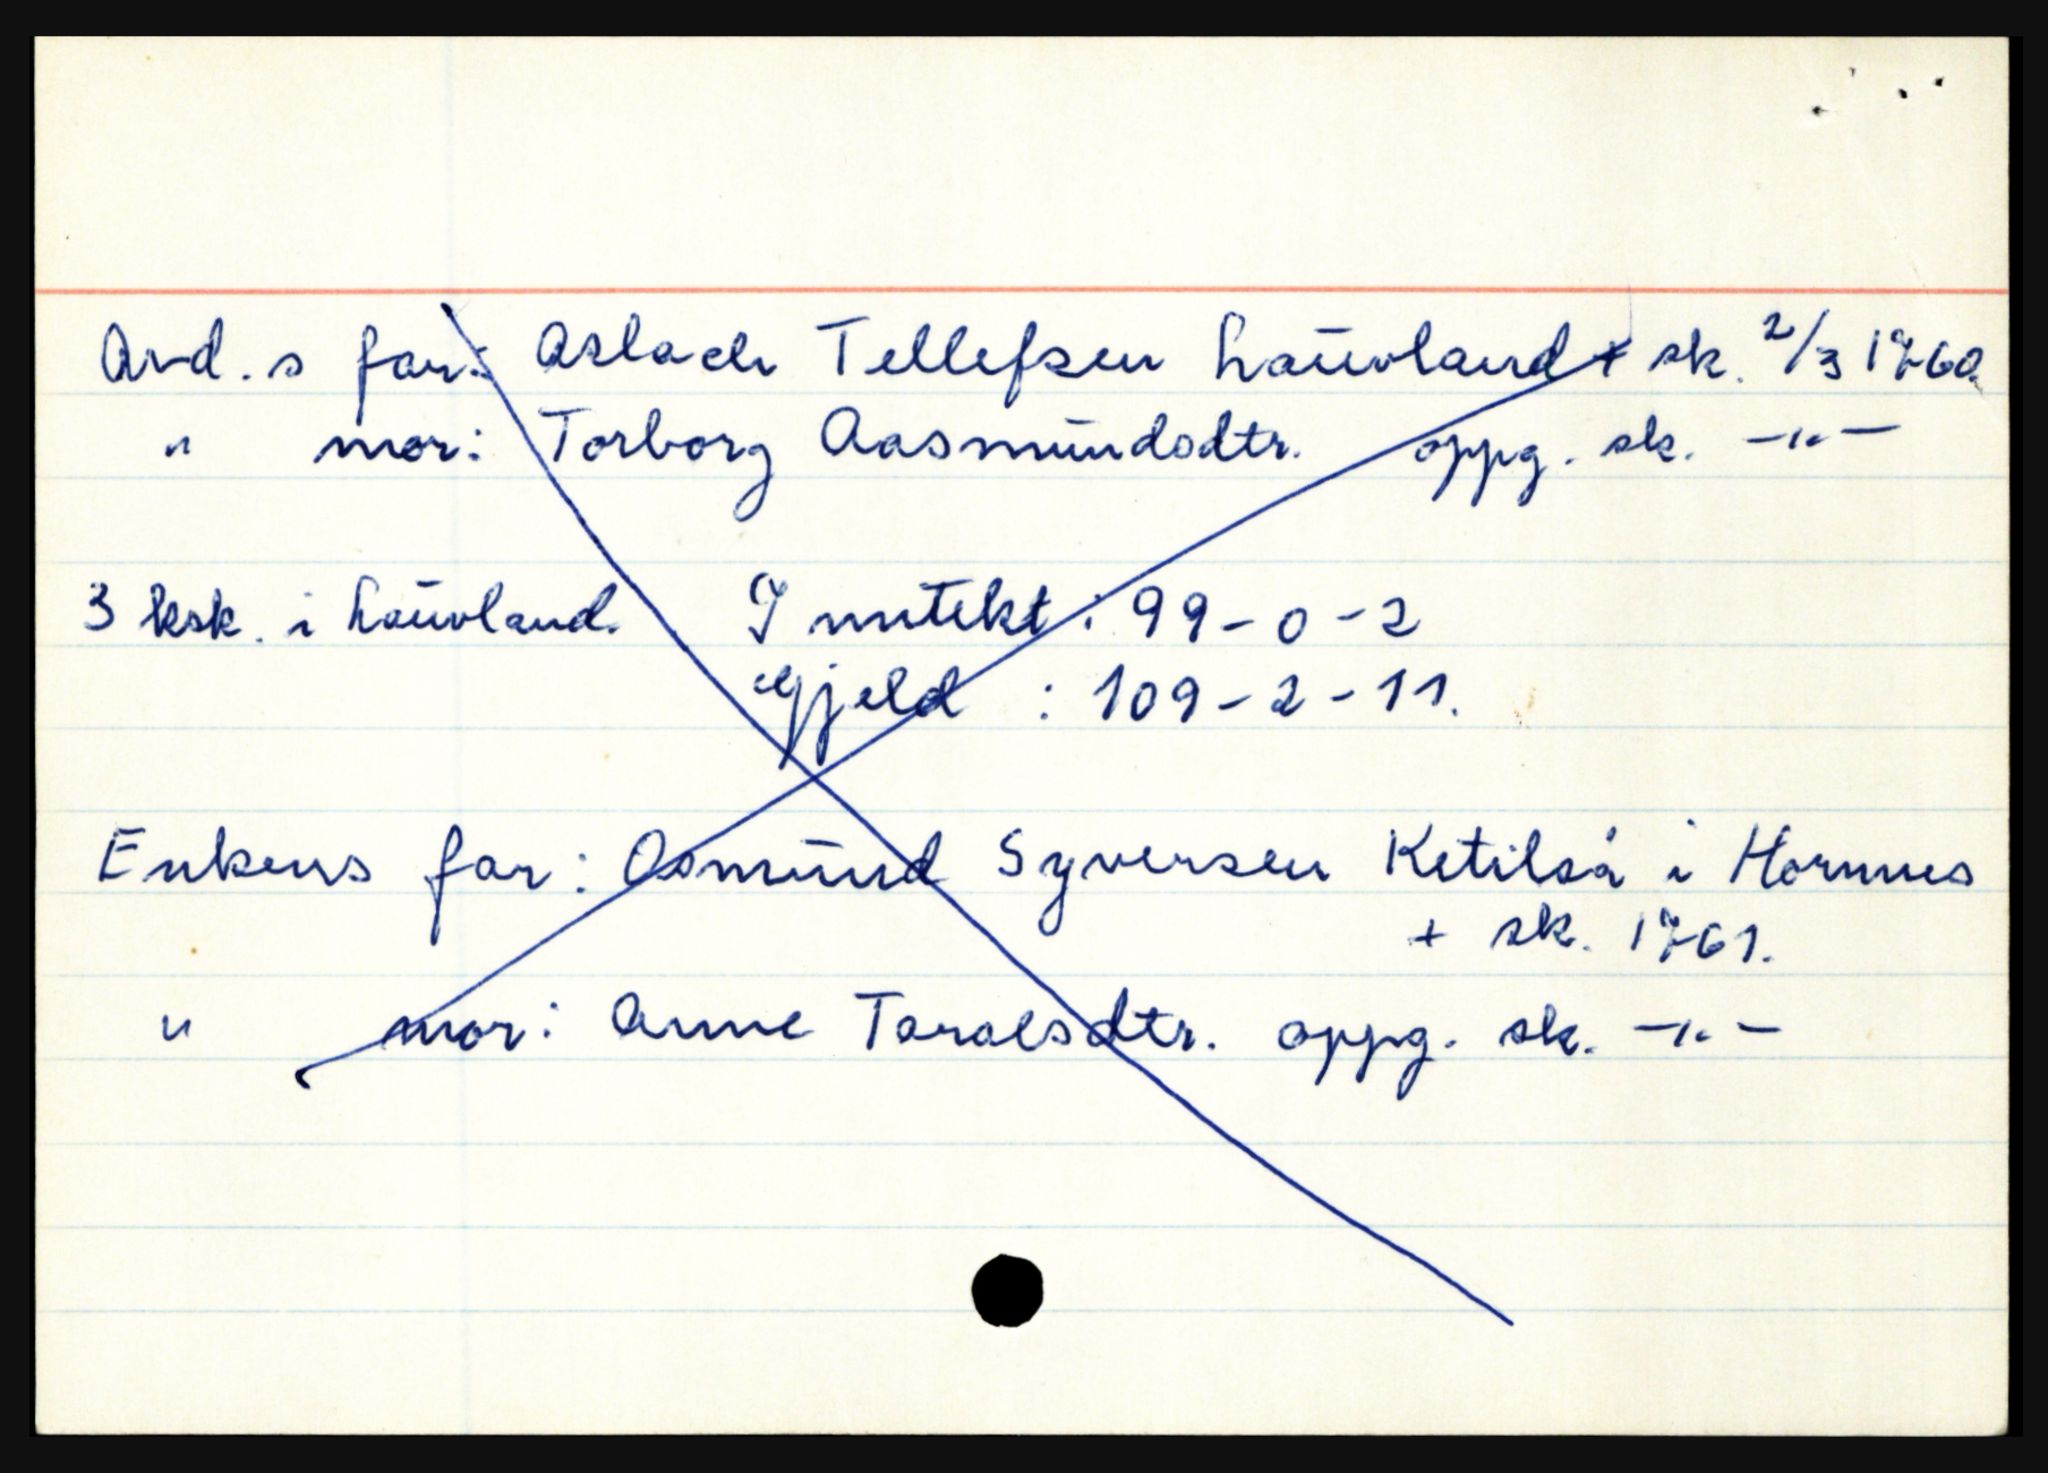 Avd.s far: Aslach Tellefsen Lauvland + sk. 2/3 1760.
" mor: Torborg Aasmundsdtr. oppg. sk. -"-
3 ksk. i Lauvland. Inntekt: 99-0-2
Gjeld : 109-2-11.
Enkens far: Osmund Syversen Ketilså i Hornnes
+ sk. 1761.
" mor: Anne Taralsdtr. oppg. sk. -"-